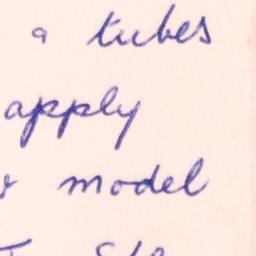 a tubes
apply
model